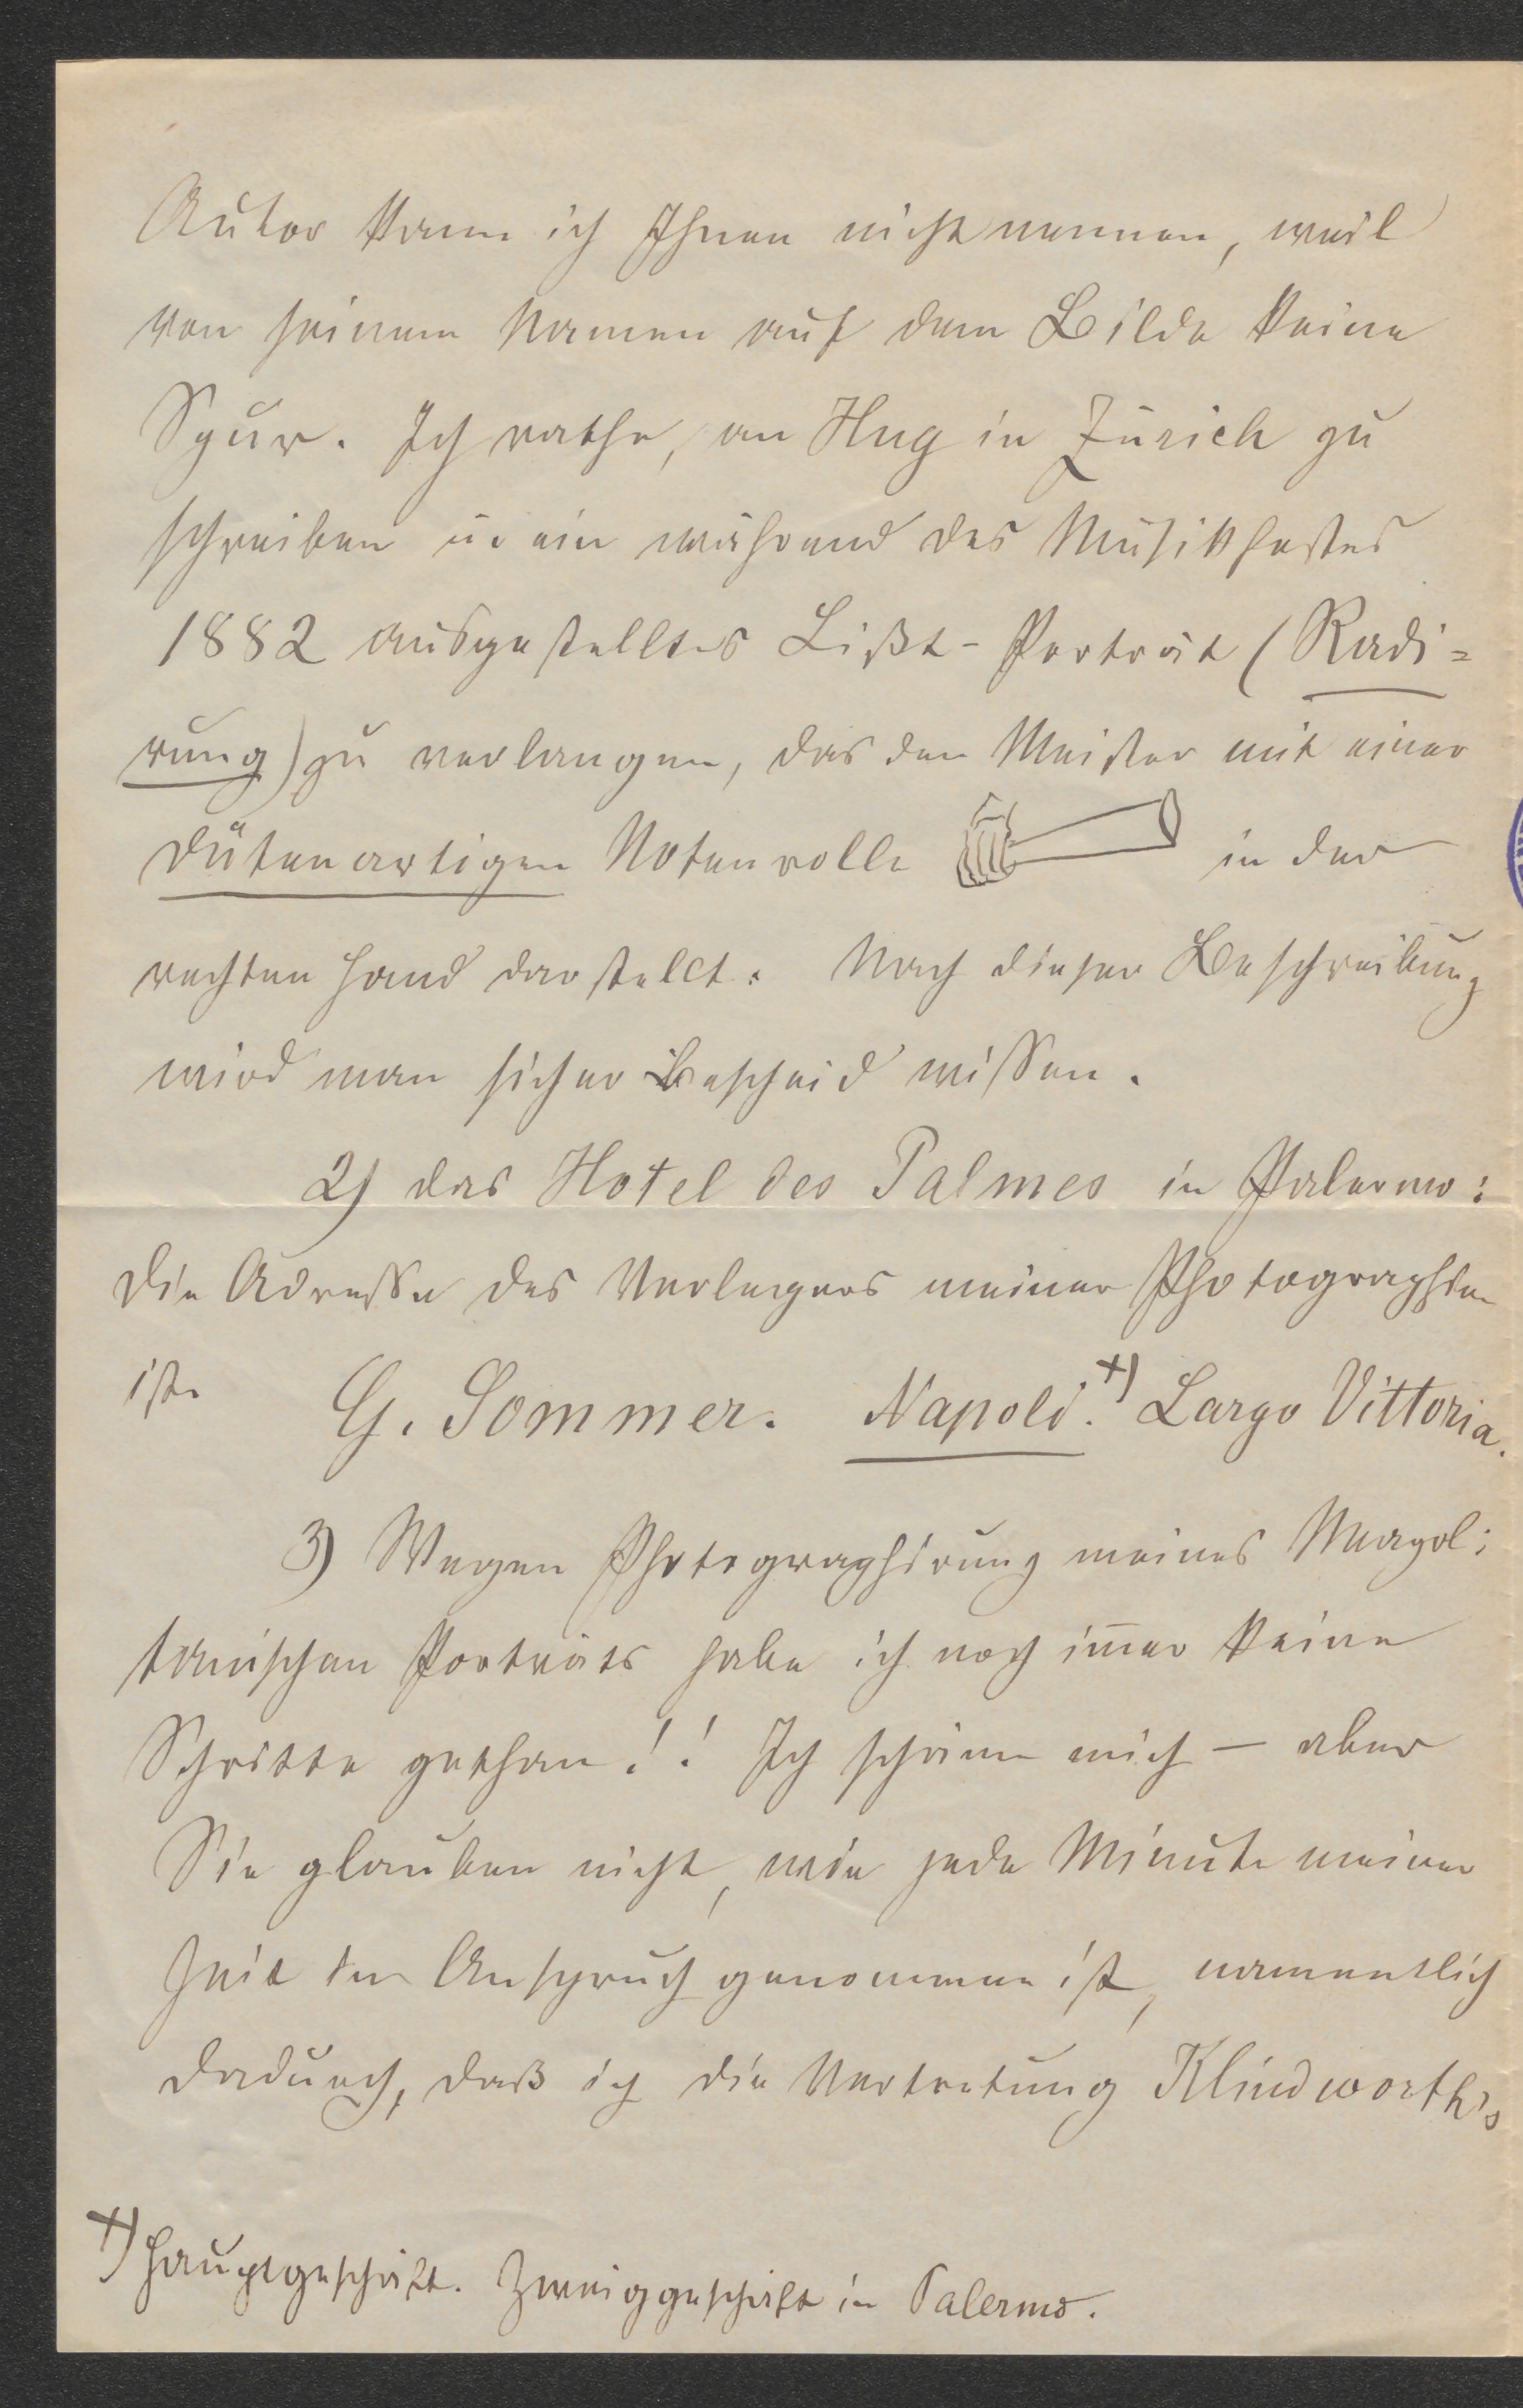 Autor kann ich Ihnen nicht nennen, weil
von seinem Namen auf dem Bilde keine
Spur. Ich rathe, an Hug in Zürich zu
schreiben u. ein während des Musikfestes
1882 ausgestelltes Lißt-Porträt (Radi=
rung) zu verlangen, das den Meister mit einer
dütenartigen Notenrolle in der
rechten Hand darstellt. Nach dieser Beschreibung
wird man sicher Bescheid wissen.
2) das Hotel des Palmes in Palermo:
die Adresse des Verlegers meiner Photographien
ist. G. Sommer. Napoli.+) Largo Vittoria.
3) Wegen Photographirung meines
Porträts habe ich noch immer keine
Schritte gethan!! Ich schäme mich – aber
Sie glauben nicht, wie jede Minute meiner
Zeit in Anspruch genommen ist, namentlich
dadurch, daß ich die Vertretung Klindworth's
+) Hauptgeschäft. Zweiggeschäft in Palermo.